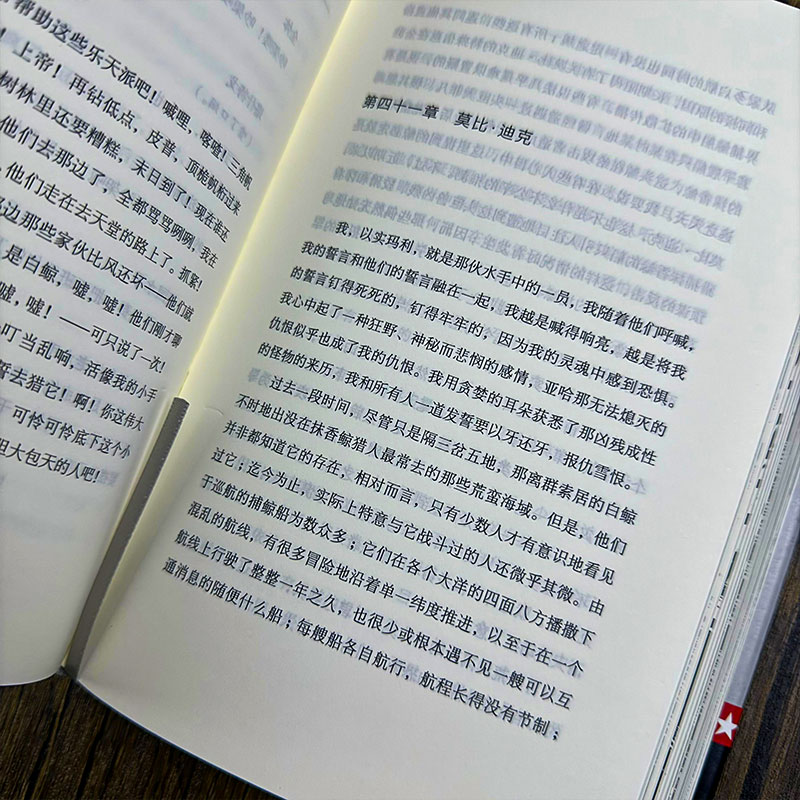 帮助这些乐天派吧！喊哩，喀喳！三角帆
上帝！再钻低点，皮普，顶桅帆桁过来
树林里还要糟糕，末日到了！现在谁还
他们去那边了，全都骂骂咧咧，我在
他们走在去天堂的路上了。抓紧！
那些家伙比风还坏——他们就
是白鲸，嘘，嘘！他们刚才聊
嘘，嘘！——可只说了一次！
叮当乱响，活像我的小手
誓去猎它！啊！你这伟大
可怜可怜底下这个小
胆大包天的人吧！
第四十一章 莫比·迪克
我，以实玛利，就是那伙水手中的一员，我随着他们呼喊，
我的誓言和他们的誓言融在一起，我越是喊得响亮，越是将我
的誓言钉得死死的，钉得牢牢的，因为我的灵魂中感到恐惧。
我心中起了一种狂野、神秘而悲悯的感情，亚哈那无法熄灭的
仇恨似乎也成了我的仇恨。我用贪婪的耳朵获悉了那凶残成性
的怪物的来历，我和所有人一道发誓要以牙还牙，报仇雪恨。
过去一段时间，尽管只是隔三岔五地，那离群索居的白鲸
不时地出没在抹香鲸猎人最常去的那些荒蛮海域。但是，他们
并非都知道它的存在，相对而言，只有少数人才有意识地看见
过它；迄今为止，实际上特意与它战斗过的人还微乎其微。由
于巡航的捕鲸船为数众多；它们在各个大洋的四面八方播撒下
混乱的航线，有很多冒险地沿着单一纬度推进，以至于在一个
航线上行驶了整整一年之久，也很少或根本遇不见一艘可以互
通消息的随便什么船；每艘船各自航行，航程长得没有节制；